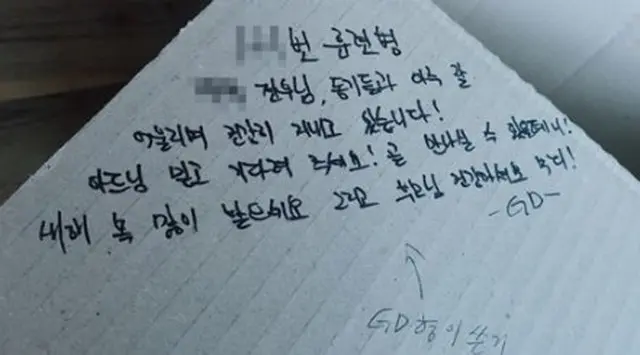 번 훈련병
전우님, 동기들과 아주 잘
어울리며 건강히 지내고 있습니다!
아드님 믿고 기다려 주세요! 곧 만나실 수 있을테니!
새해 복 많이 받으세요 그리고 부모님 건강하세요 부디!
-GD-
GD형이